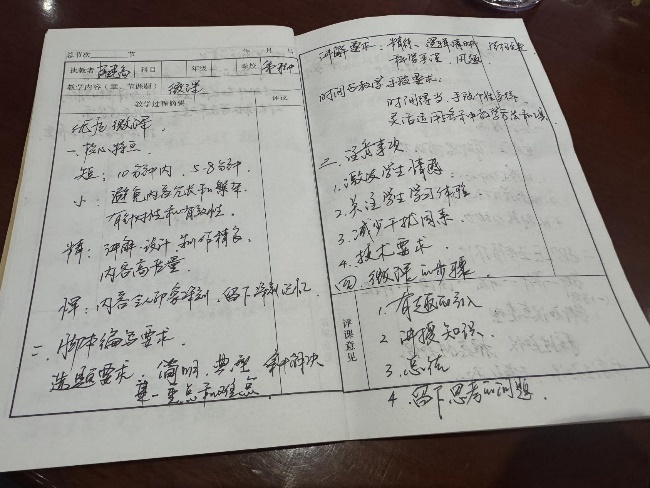 总节次 节 年 月 日
执教者 科目 年级 学校
教学内容(章、节课题) 微课
教学过程摘要 评议
优秀微课
一、核心特点
短:10分钟内,5-8分钟
小:避免内容冗长和繁杂
有针对性和有效性。
精:讲解、设计、制作精良
内容高质量
悍:内容令人印象深刻,留下深刻记忆
二、脚本编写要求
选题要求,简明,典型,集中解决
某一重点和难点
讲解要求:精练、逻辑清晰
科学准确、风趣
时间与教学手段要求:
时间得当,手段个性多样
灵活运用各种教学方法和
三、注意事项
1.激发学生情感
2.关注学生学习体验
3.减少干扰因素
4.技术要求
四、微课的步骤
评课意见
1.有趣的引入
2 讲授知识.
3.总结
4.留下思考的问题.